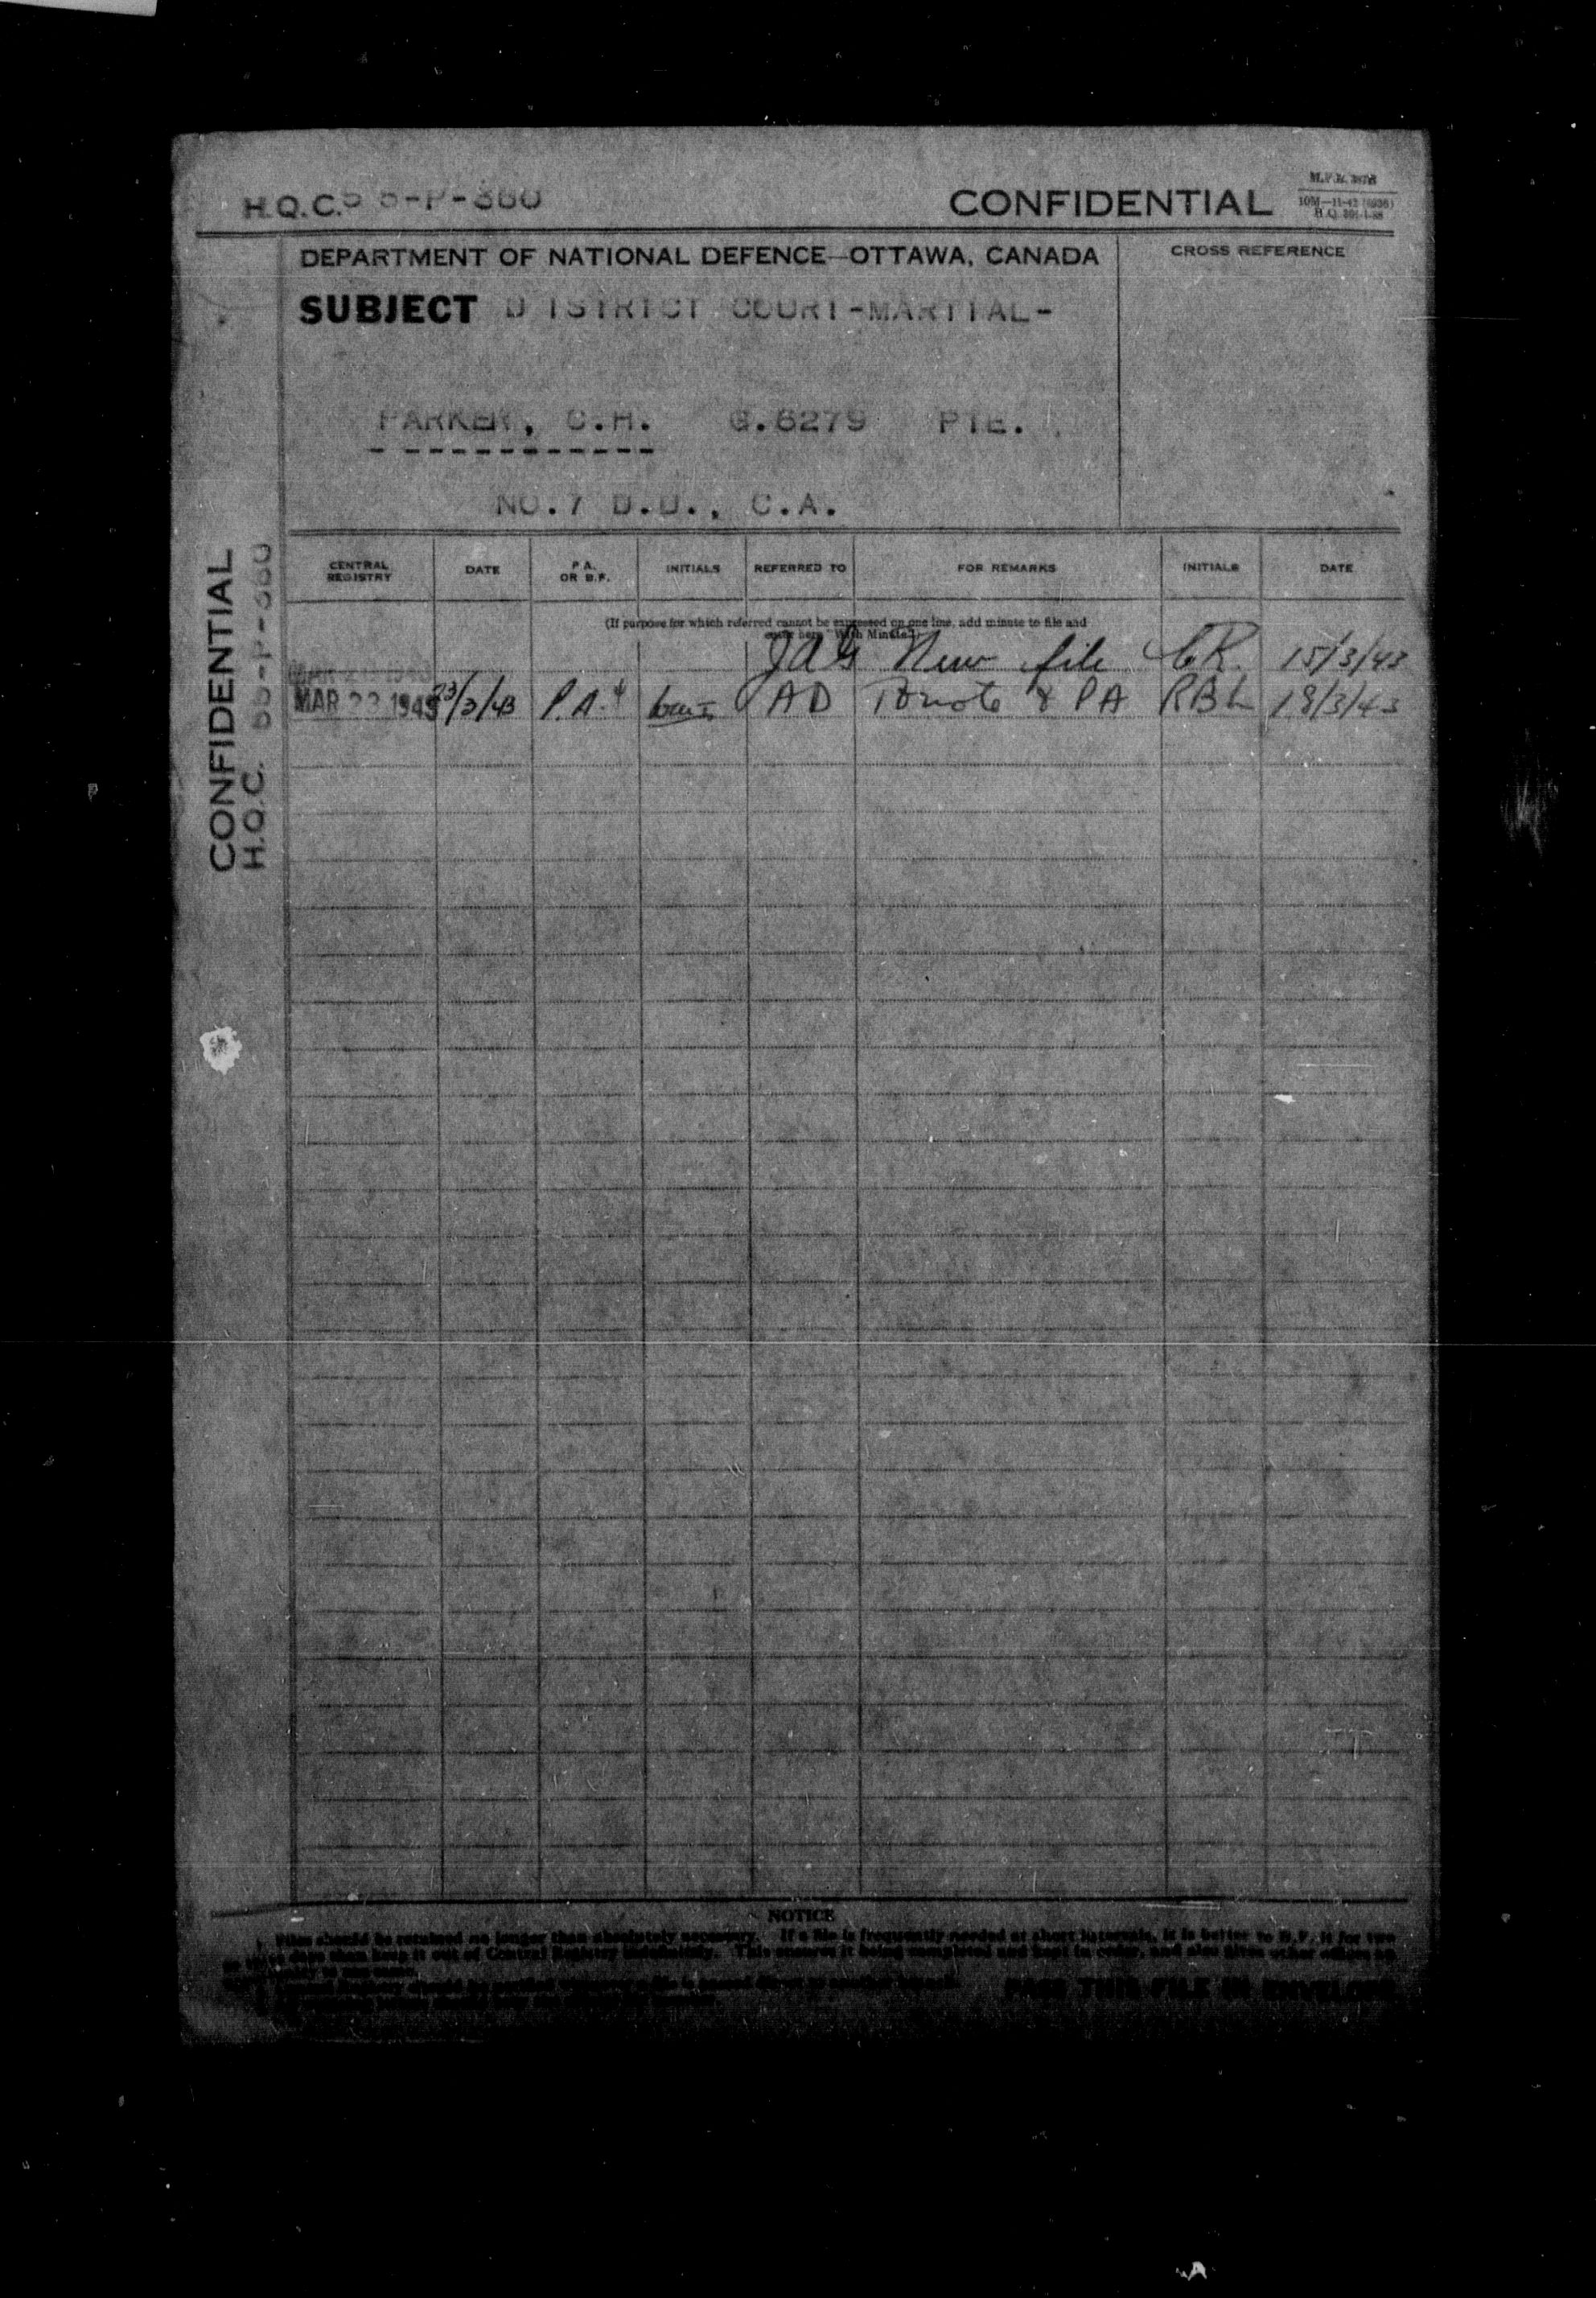 H.Q.C. 55-P-360
CONFIDENTIAL
10M—11-42 (6936)
H.Q. 391-1-88
DEPARTMENT OF NATIONAL DEFENCE—OTTAWA, CANADA
CROSS REFERENCE
SUBJECT DISTRICT COURT-MARTIAL-
PARKER, C.H. G.6279 PTE.
NO.7 D.D., C.A.
CONFIDENTIAL
H.Q.C. 55-P-360
CENTRAL REGISTRY DATE P.A. OR B.F. INITIALS REFERRED TO FOR REMARKS INITIALS DATE
(If purpose for which referred cannot be expressed on one line, add minute to file and
enter here "With Minute")
JAG New file CR. 15/3/43
MAR 22 1943 23/3/43 P.A. AD To note & PA RBL 18/3/43
NOTICE
Files should be retained no longer than absolutely necessary. If a file is frequently needed at short intervals, it is better to B.F. it for two
or three days than keep it out of Central Registry indefinitely. This ensures it being completed and kept in order, and also gives other offices an
PASS THIS FILE IN ENVELOPE